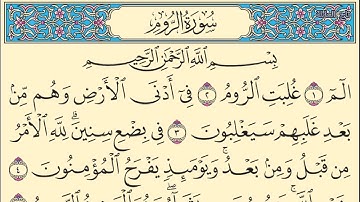 سُورَةُ الرُّومِ
بِسْمِ ٱللَّهِ ٱلرَّحْمَٰنِ ٱلرَّحِيمِ
الٓمٓ ١ غُلِبَتِ ٱلرُّومُ ٢ فِىٓ أَدْنَى ٱلْأَرْضِ وَهُم مِّنۢ
بَعْدِ غَلَبِهِمْ سَيَغْلِبُونَ ٣ فِى بِضْعِ سِنِينَۗ لِلَّهِ ٱلْأَمْرُ
مِن قَبْلُ وَمِنۢ بَعْدُۚ وَيَوْمَئِذٍ يَفْرَحُ ٱلْمُؤْمِنُونَ ٤